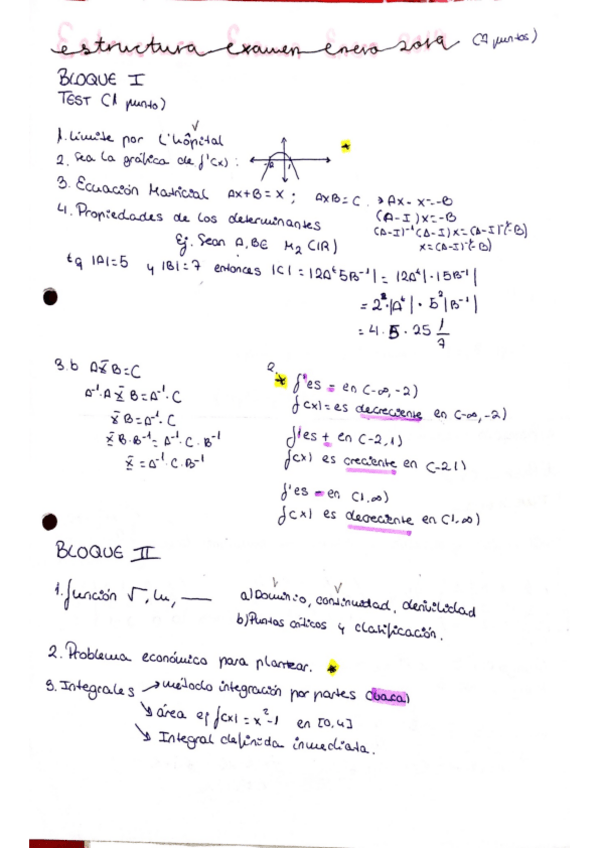 estructura Examen enero 2019 (7 puntos)
BLOQUE I
TEST (1 punto)
1. Límite por L'hôpital
2. Sea la gráfica de f'(x):
3. Ecuación Matricial AX+B=X ; AXB=C → AX-X=-B
(A-I)X=-B
(A-I)⁻¹(A-I)X=(A-I)⁻¹(-B)
X=(A-I)⁻¹(-B)
4. Propiedades de los determinantes
Ej. Sean A,B∈ M₂(IR)
tq |A|=5 y |B|=7 entonces |C|=|2Aᵗ5B⁻¹|=|2Aᵗ|·|5B⁻¹|
=2²·|Aᵗ|·5²|B⁻¹|
=4·5·25 1/7
3.b AXB=C
A⁻¹·AXB=A⁻¹·C
XB=A⁻¹·C
XB·B⁻¹=A⁻¹·C·B⁻¹
X=A⁻¹·C·B⁻¹
2.
f' es - en (-∞,-2)
f(x)= es decreciente en (-∞,-2)
f' es + en (-2,1)
f(x) es creciente en (-2,1)
f' es - en (1,∞)
f(x) es decreciente en (1,∞)
BLOQUE II
1. función √, ln, —— a) Dominio, continuidad, derivilidad
b) Puntos críticos y clasificación.
2. Problema económico para plantear.
3. Integrales → método integración por partes
↘ área ej f(x)=x²-1 en [0,4]
↘ Integral definida inmediata.